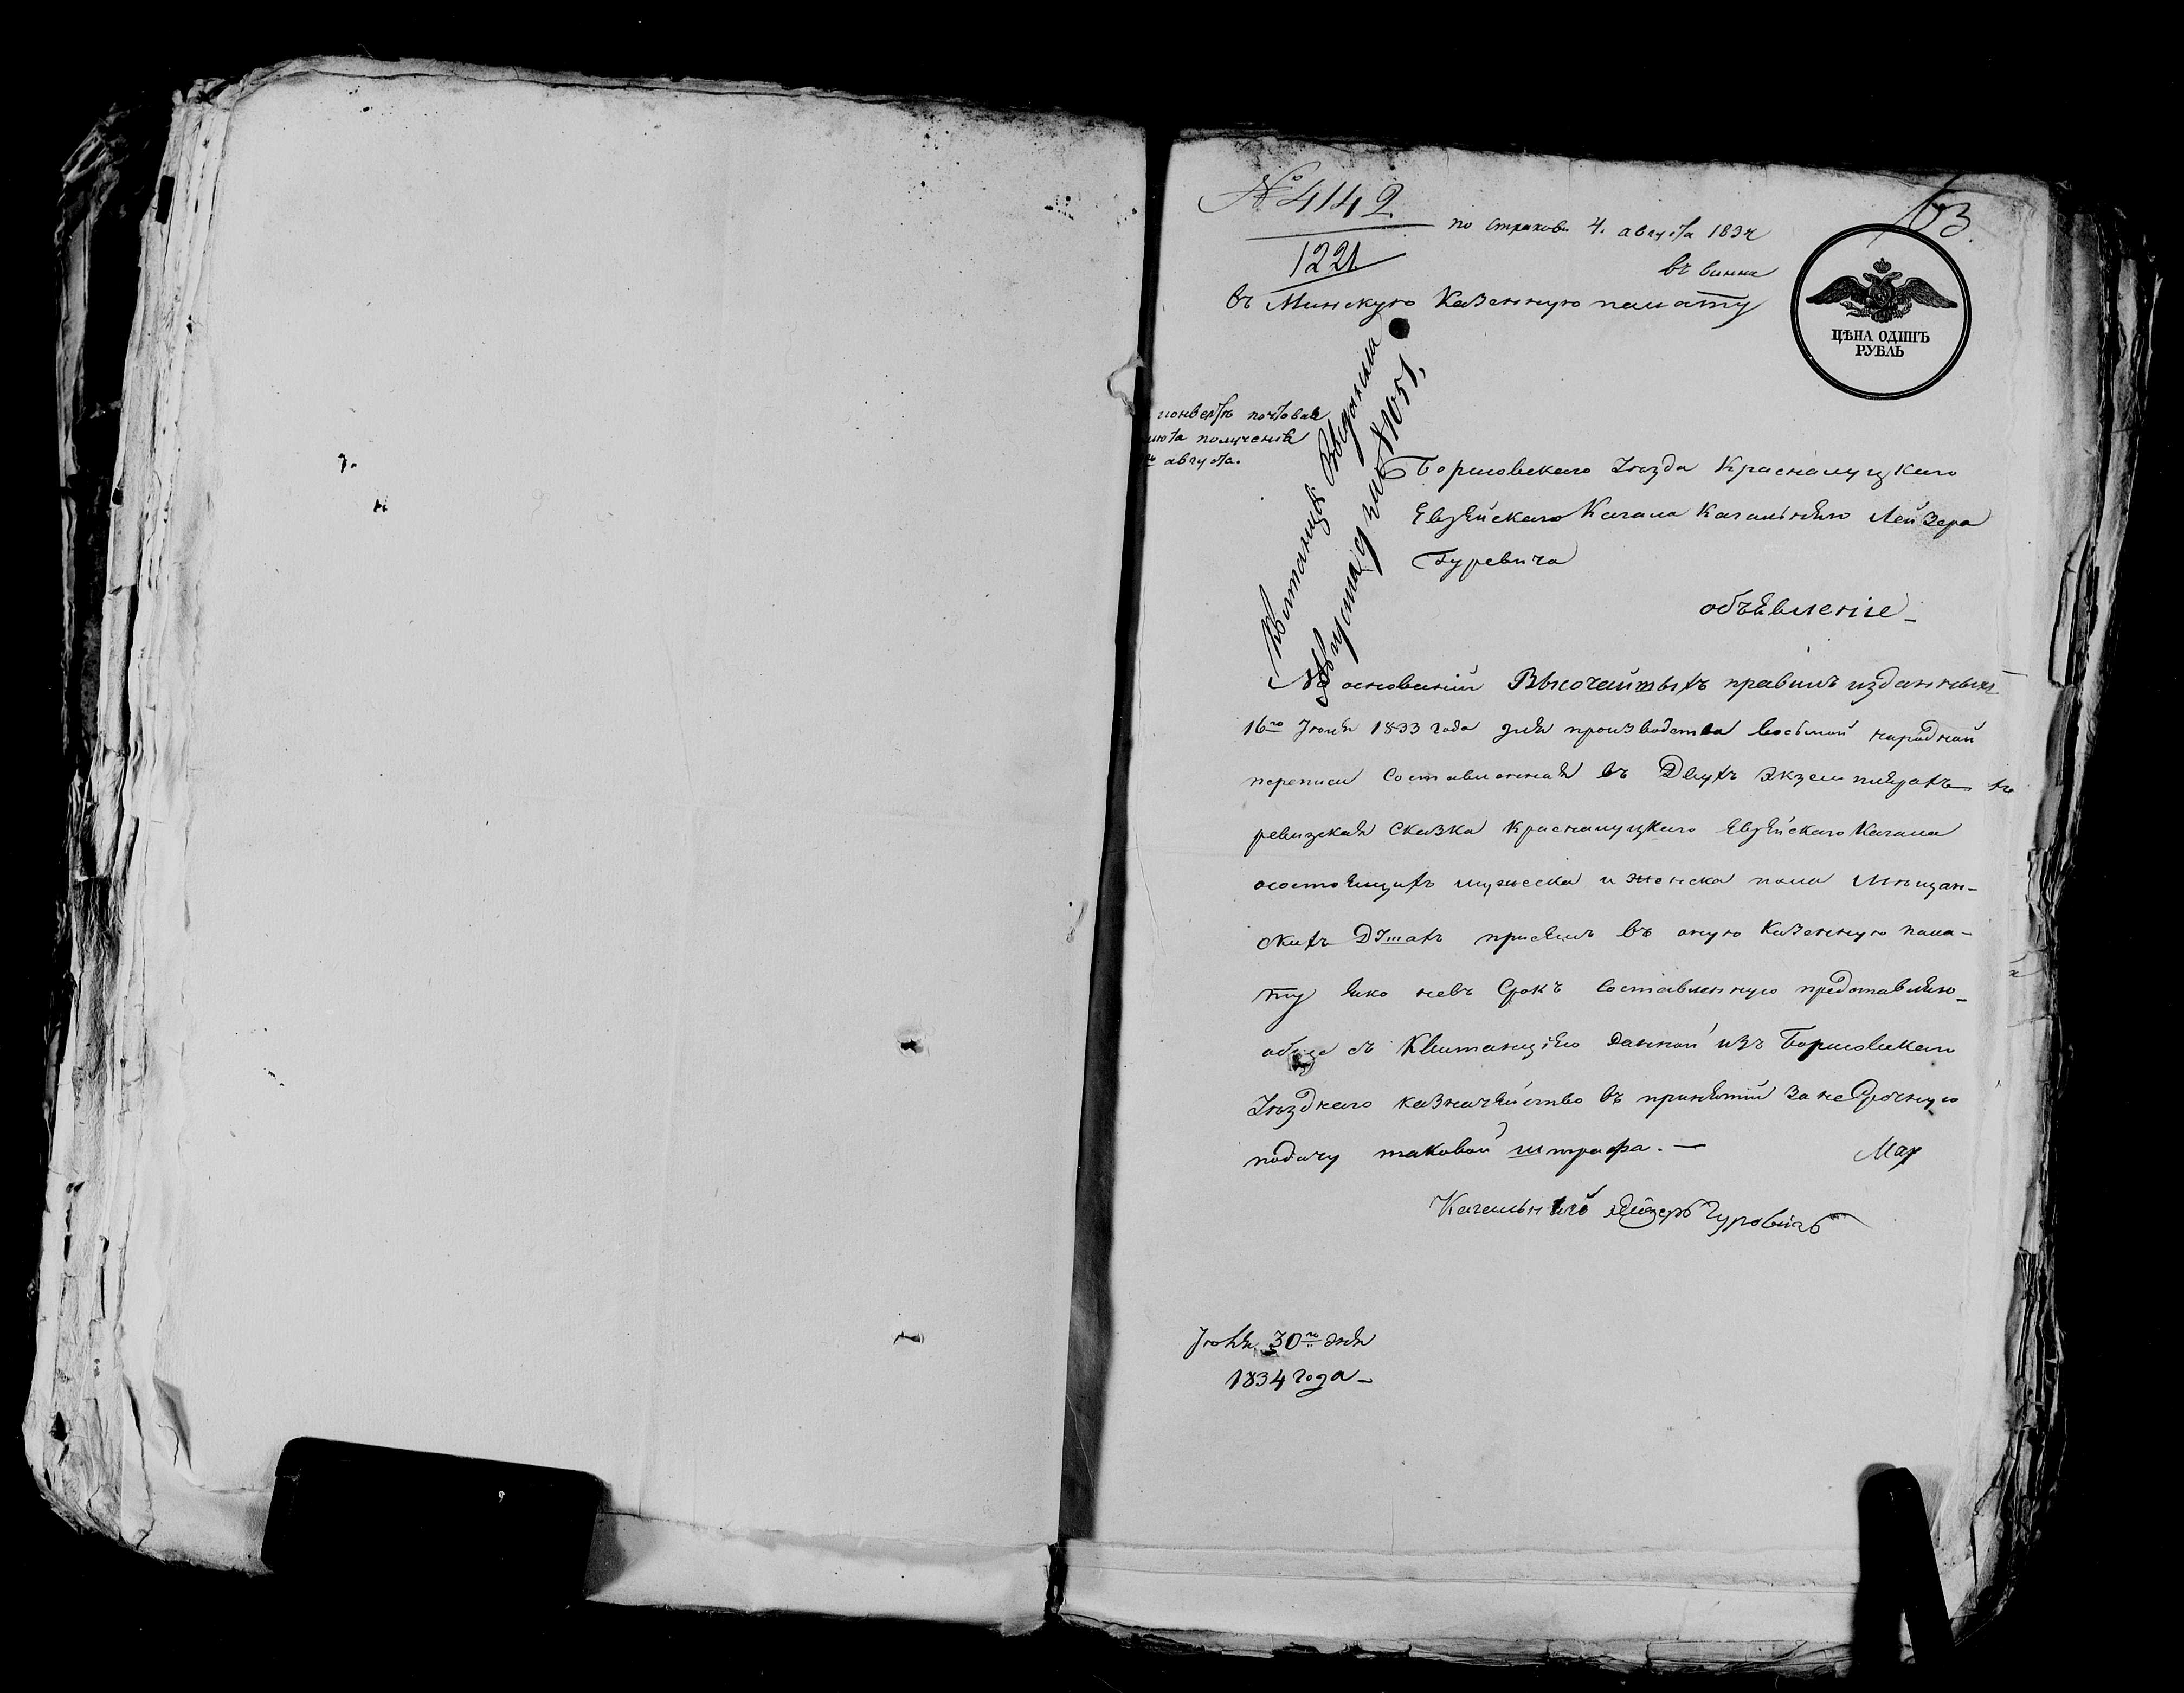 № 4142
1221
по страхов. 4. августа 1834
въ Минскую Казенную палату
63.
ЦѢНА ОДИНЪ
РУБЛЬ
конвертѣ почтовая
получения
августа.
Квитанция Выслана
Августа 9 1051,
Борисовскаго Уѣзда Красналуцкаго
Еврейскаго Кагала Кагальняго Лейзера
Гуревича
объявленіе
На основаніи Высочайшыхъ правилъ изданныхъ
16го Іюня 1833 года для производства восьмой народной
переписи Составленная въ Двухъ экземплярахъ
ревизская Сказка Красналуцкаго Еврейскаго Кагала
о состоящихъ мужеска и женска пола Мѣщан-
скихъ Душахъ при семъ въ оную Казенную пала-
ту яко невъ Срокъ Составленную предоставляю
обще съ Квитанціею данной изъ Борисовскаго
Уѣзднаго казначейство въ принятій за не Срочную
подачу таковой штрафа. —
Кагальный Лейзеръ Гуровичъ
30го дня
1834 года